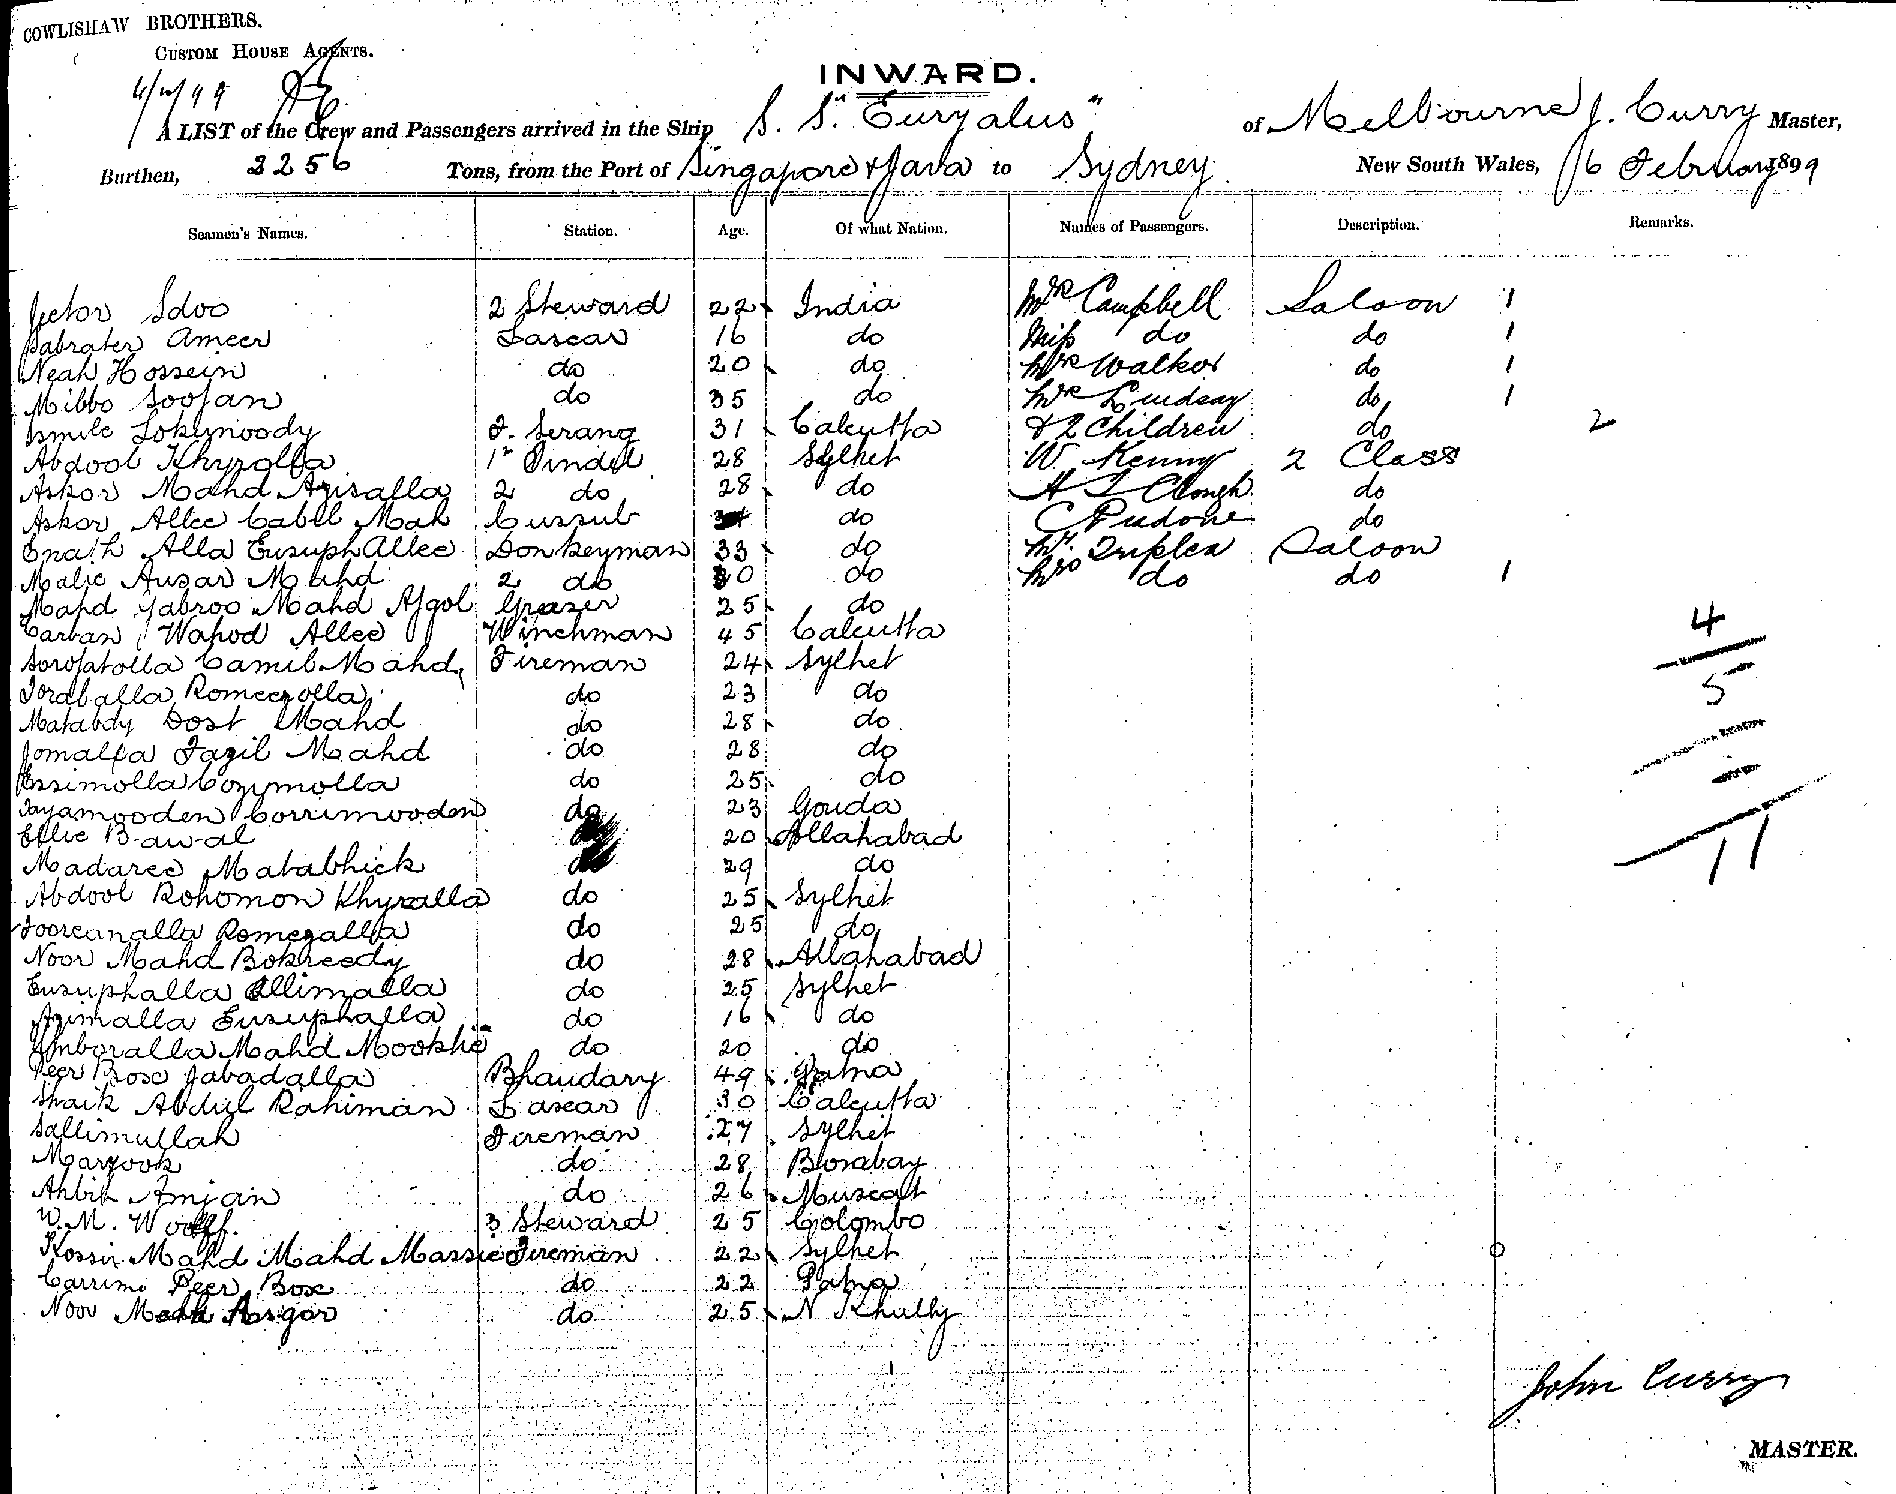 COWLISHAW BROTHERS.
CUSTOM HOUSE AGENTS.
INWARD.
A LIST of the Crew and Passengers arrived in the Ship S. S. "Euryalus" of Melbourne J. Curry Master,
Burthen, 3256 Tons, from the Port of Singapore & Java to Sydney New South Wales, 6 February 1899
Seamen's Names. Station. Age. Of what Nation. Names of Passengers. Description. Remarks.
Jetor Idoo 2 Steward 22 India Mrs Campbell Saloon 1
Ameer Lascar 16 do Miss do do 1
Neah Hossein do 20 do Mrs Walker do 1
Mibbo Soojan do 35 do Mrs Lindsay do 1
Ismile Serang 31 Calcutta & 2 Children do 2
Abdool Khyrolla 1st Tindel 28 Sylhet W. Kenny 2 Class
Askor Mahd Azisalla 2 do 28 do Clough do
Askor Allee Cabll Mah Cussub do C Pudone do
Enath Alla Eusuph Allee Donkeyman 33 do Mr. Triplex Saloon
Malic Ausar Mahd 2 do 30 do Mrs do do 1
Mahd Jabroo Mahd Afgol Greaser 25 do
Carban Wahod Allee Winchman 45 Calcutta
4
Sorofatolla Camil Mahd Fireman 24 Sylhet
Toraballa Romeerolla do 23 do
5
Matabdy Dost Mahd do 28 do
Jomalla Fazil Mahd do 28 do
Essimolla Cozimolla do 25 do
Tayamooden Corrimooden do 23 Gouda
Ellie Bawal 20 Allahabad
11
Madaree Matabhick 29 do
Abdool Rohomon Khyralla do 25 Sylhet
Tooreanalla Romezalla do 25 do
Noor Mahd Bokreedy do 28 Allahabad
Eusuphalla Allimalla do 25 Sylhet
Azimalla Eusuphalla do 16 do
Amboralla Mahd Mookhie do 20 do
Peer Box Jabadalla Bhaudary 49 Patna
Shaik Abdul Rahiman Lascar 30 Calcutta
Sallimullah Fireman 27 Sylhet
Marzook do 28 Bombay
Ahbib Amjan do 26 Muscat
W. M. Woolf. 3 Steward 25 Colombo
Kossir Mahd Mahd Massie Fireman 22 Sylhet
Carrimo Peer Box do 22 Patna
Noor Asgor do 25 N Khully
John Curry
MASTER.